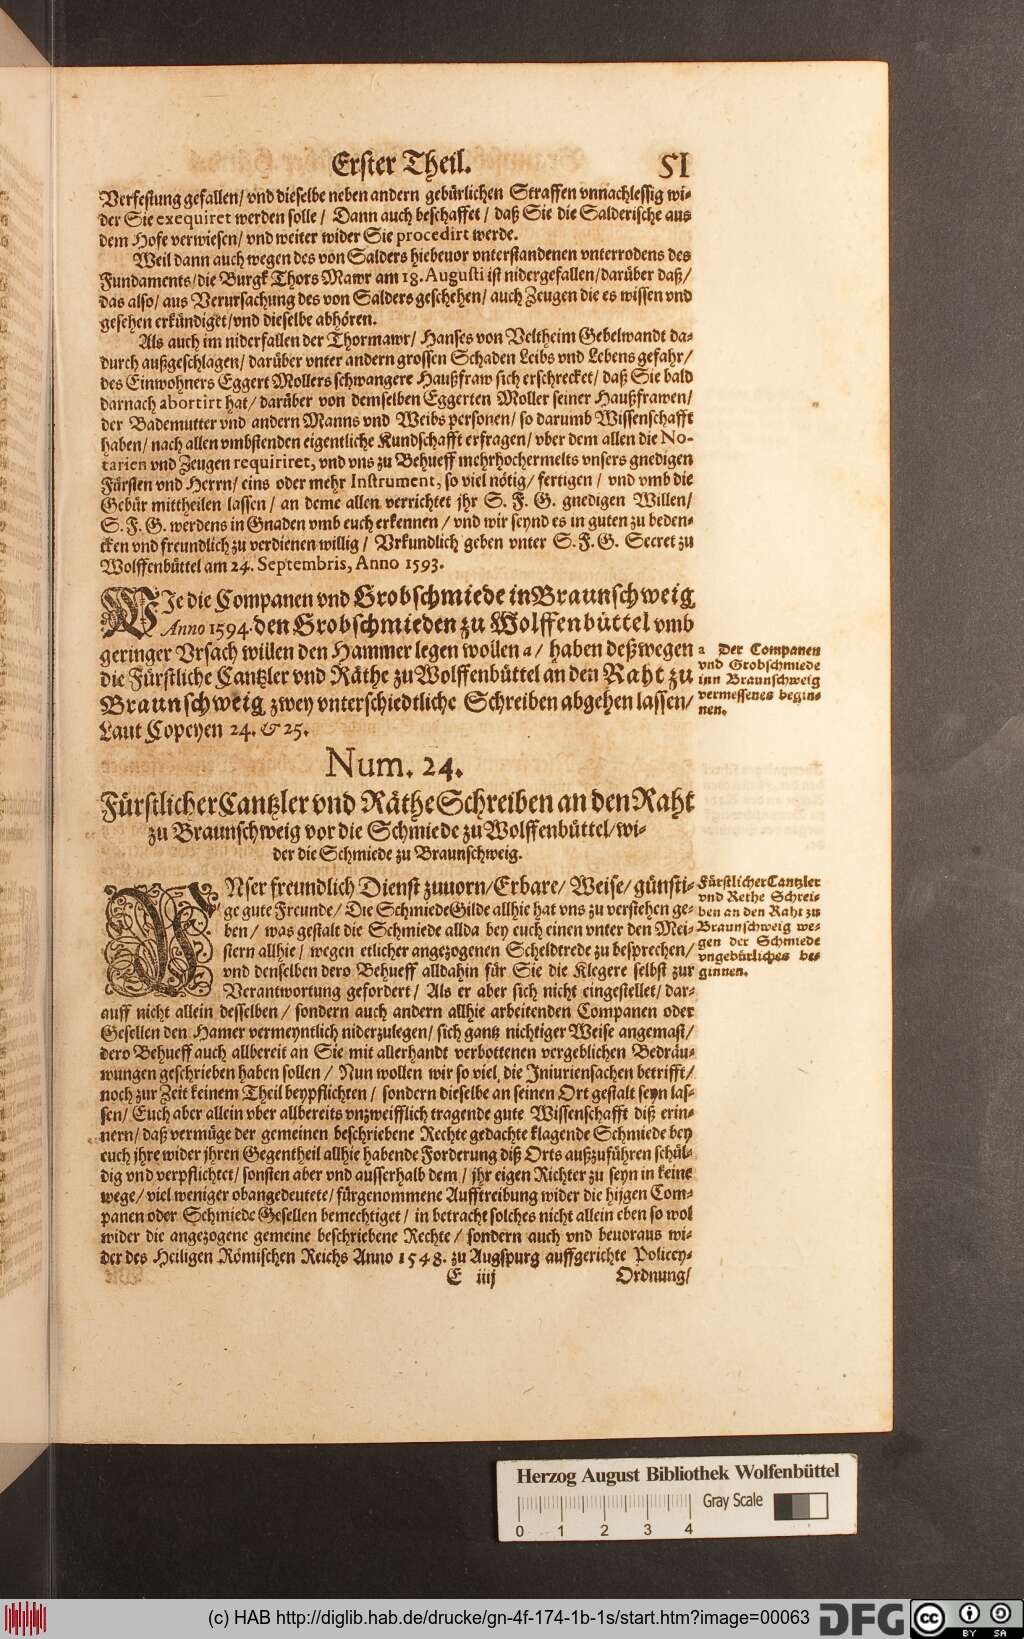 Erster Theil. 51
Verfestung gefallen/ vnd dieselbe neben andern gebürlichen Straffen vnnachlessig wi-
der Sie exequiret werden solle / Dann auch beschaffet / daß Sie die Salderische aus
dem Hofe verwiesen/ vnd weiter wider Sie procedirt werde.
Weil dann auch wegen des von Salders hiebeuor vnterstandenen vnterrodens des
Fundaments/die Burgk Thors Mawr am 18. Augusti ist nidergefallen/darüber daß/
das also/ aus Verursachung des von Salders geschehen/ auch Zeugen die es wissen vnd
gesehen erkündiget/vnd dieselbe abhören.
Als auch im niderfallen der Thormawr/ Hanses von Veltheim Gebelwandt da-
durch außgeschlagen/ darüber vnter andern grossen Schaden Leibs vnd Lebens gefahr/
des Einwohners Eggert Mollers schwangere Haußfraw sich erschrecket/ daß Sie bald
darnach abortirt hat/ darüber von demselben Eggerten Moller seiner Haußfrawen/
der Bademutter vnd andern Manns vnd Weibs personen/ so darumb Wissenschafft
haben/ nach allen vmbstenden eigentliche Kundschafft erfragen/ vber dem allen die No-
tarien vnd Zeugen requiriret, vnd vns zu Behueff mehrhochermelts vnsers gnedigen
Fürsten vnd Herrn/ eins oder mehr Instrument, so viel nötig/ fertigen / vnd vmb die
Gebür mittheilen lassen / an deme allen verrichtet jhr S. F. G. gnedigen Willen/
S. F. G. werdens in Gnaden vmb euch erkennen / vnd wir seynd es in guten zu beden-
cken vnd freundlich zu verdienen willig / Vrkundlich geben vnter S. F. G. Secret zu
Wolffenbüttel am 24. Septembris, Anno 1593.
WJe die Companen vnd Grobschmiede in Braunschweig
Anno 1594. den Grobschmieden zu Wolffenbüttel vmb
geringer Vrsach willen den Hammer legen wollen a / haben deßwegen
die Fürstliche Cantzler vnd Räthe zu Wolffenbüttel an den Raht zu
Braunschweig zwey vnterschiedtliche Schreiben abgehen lassen/
Laut Copeyen 24. & 25.
a Der Companen
vnd Grobschmiede
inn Braunschweig
vermessenes begin-
nen.
Num. 24.
Fürstlicher Cantzler vnd Räthe Schreiben an den Raht
zu Braunschweig vor die Schmiede zu Wolffenbüttel/ wi-
der die Schmiede zu Braunschweig.
VNser freundlich Dienst zuuorn/ Erbare/ Weise/ günsti-
ge gute Freunde/ Die Schmiede Gilde allhie hat vns zu verstehen ge-
ben / was gestalt die Schmiede allda bey euch einen vnter den Mei-
stern allhie / wegen etlicher angezogenen Scheldtrede zu besprechen/
vnd denselben dero Behueff alldahin für Sie die Klegere selbst zur
Verantwortung gefordert / Als er aber sich nicht eingestellet/ dar-
auff nicht allein desselben / sondern auch andern allhie arbeitenden Companen oder
Gesellen den Hamer vermeyntlich niderzulegen/ sich gantz nichtiger Weise angemast/
dero Behueff auch allbereit an Sie mit allerhandt verbottenen vergeblichen Bedräu-
wungen geschrieben haben sollen / Nun wollen wir so viel die Iniuriensachen betrifft/
noch zur Zeit keinem Theil beypflichten / sondern dieselbe an seinen Ort gestalt seyn las-
sen/ Euch aber allein vber allbereits vnzweifflich tragende gute Wissenschafft diß erin-
nern/ daß vermüge der gemeinen beschriebene Rechte gedachte klagende Schmiede bey
euch jhre wider jhren Gegentheil allhie habende Forderung diß Orts außzuführen schül-
dig vnd verpflichtet/ sonsten aber vnd ausserhalb dem / jhr eigen Richter zu seyn in keine
wege/ viel weniger obangedeutete/ fürgenommene Aufftreibung wider die hijgen Com-
panen oder Schmiede Gesellen bemechtiget / in betracht solches nicht allein eben so wol
wider die angezogene gemeine beschriebene Rechte / sondern auch vnd beuoraus wi-
der des Heiligen Römischen Reichs Anno 1548. zu Augspurg auffgerichte Policey-
Fürstlicher Cantzler
vnd Rethe Schrei-
ben an den Raht zu
Braunschweig we-
gen der Schmiede
vngebürliches be-
ginnen.
E iiij Ordnung/
Herzog August Bibliothek Wolfenbüttel
Gray Scale
0 1 2 3 4
(c) HAB http://diglib.hab.de/drucke/gn-4f-174-1b-1s/start.htm?image=00063
DFG
cc BY SA